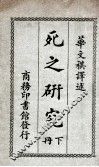 華文祺譯述
死之研究
下册
商務印書館發行